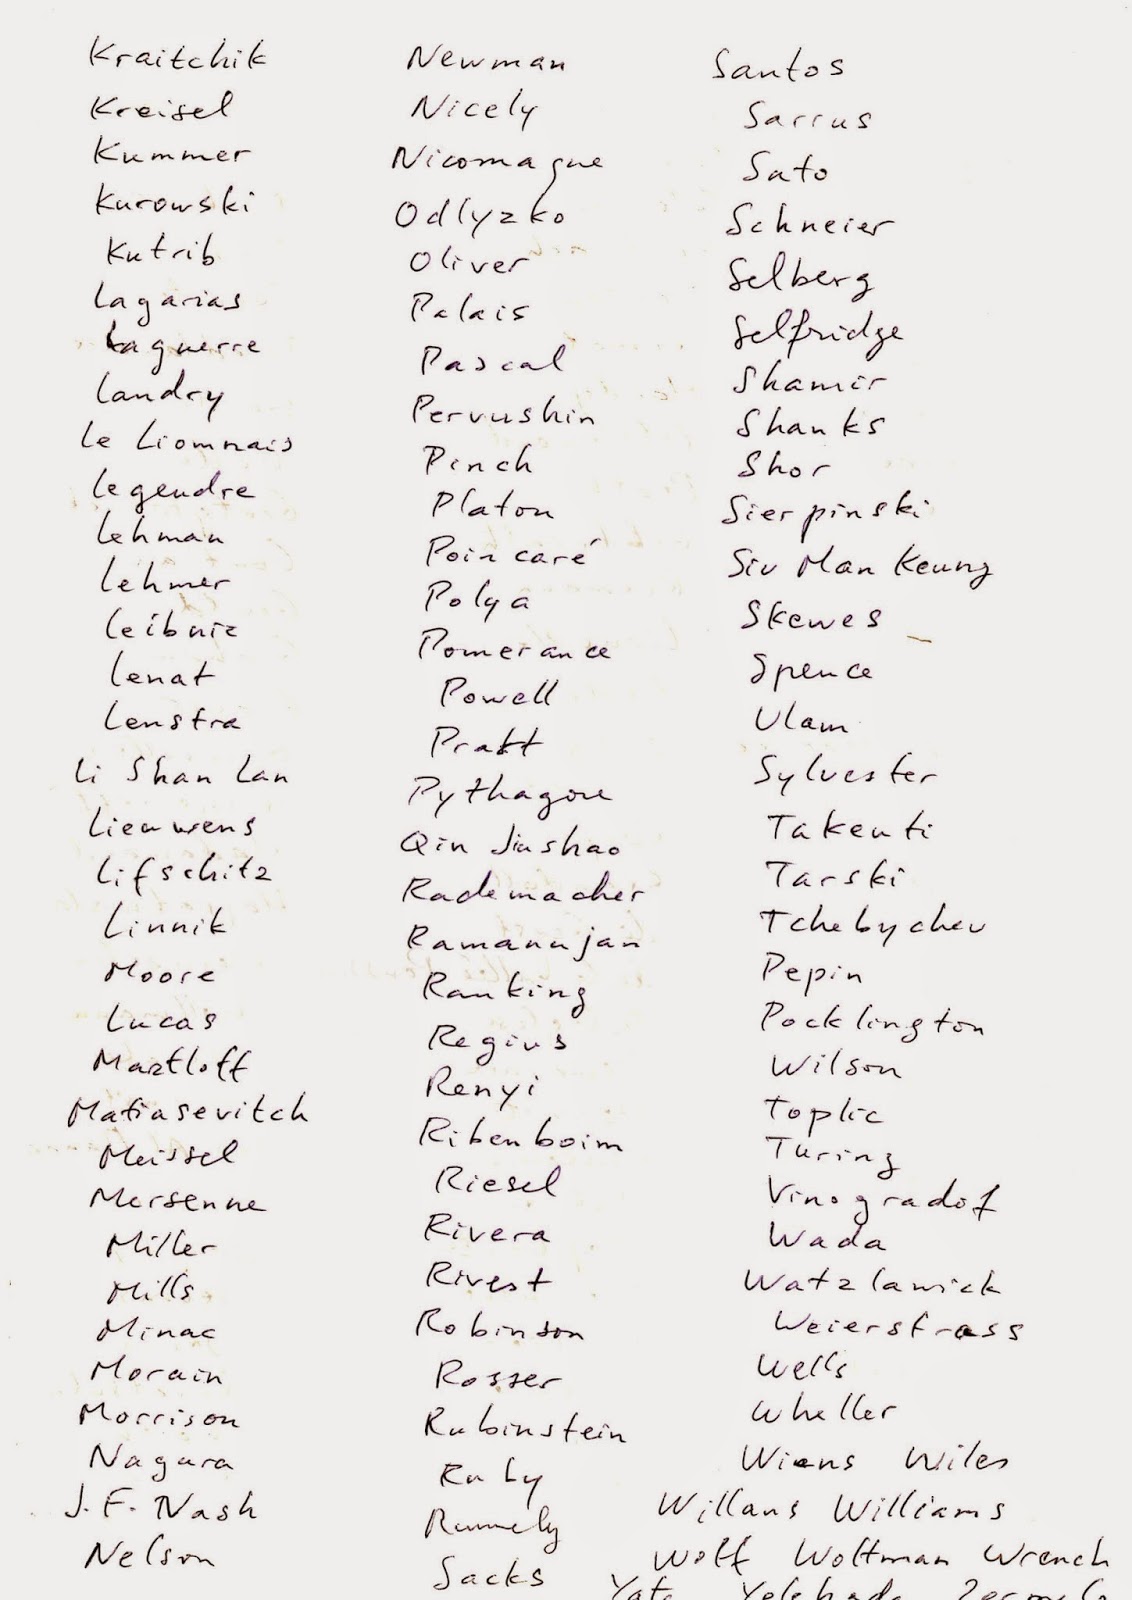 Kraitchik
Kreisel
Kummer
Kurowski
Kutrib
Lagarias
Laguerre
Landry
Le Liomnais
Legendre
Lehman
Lehmer
Leibniz
Lenat
Lenstra
Li Shan Lan
Lieuwens
Lifschitz
Linnik
Moore
Lucas
Maztloff
Matiasevitch
Meissel
Mersenne
Miller
Mills
Minac
Morain
Morrison
Nagara
J. F. Nash
Nelson
Newman
Nicely
Nicomaque
Odlyzko
Oliver
Palais
Pascal
Pervushin
Pinch
Platon
Poincaré
Polya
Pomerance
Powell
Pratt
Pythagore
Qin Jiushao
Rademacher
Ramanujan
Ranking
Regius
Renyi
Ribenboim
Riesel
Rivera
Rivest
Robinson
Rosser
Rubinstein
Ruby
Rumely
Sacks
Santos
Sarrus
Sato
Schneier
Selberg
Selfridge
Shamir
Shanks
Shor
Sierpinski
Siu Man Keung
Skewes
Spence
Ulam
Sylvester
Takeuti
Tarski
Tchebychev
Pepin
Pocklington
Wilson
Toplic
Turing
Vinogradof
Wada
Watzlawick
Weierstrass
Wells
Wheller
Wiens Wiles
Willans Williams
Wolf Woltman Wrench